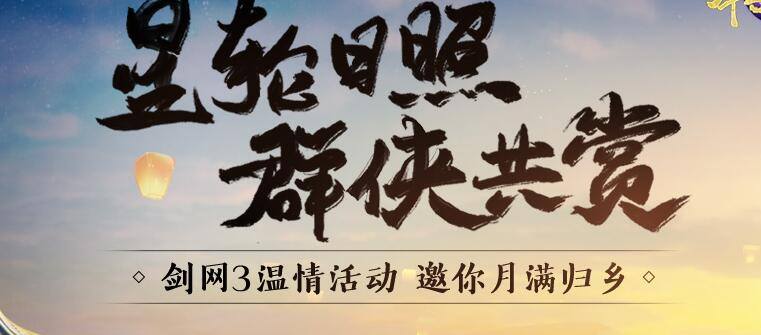 星轮日照
群侠共赏
剑网3温情活动 邀你月满归乡